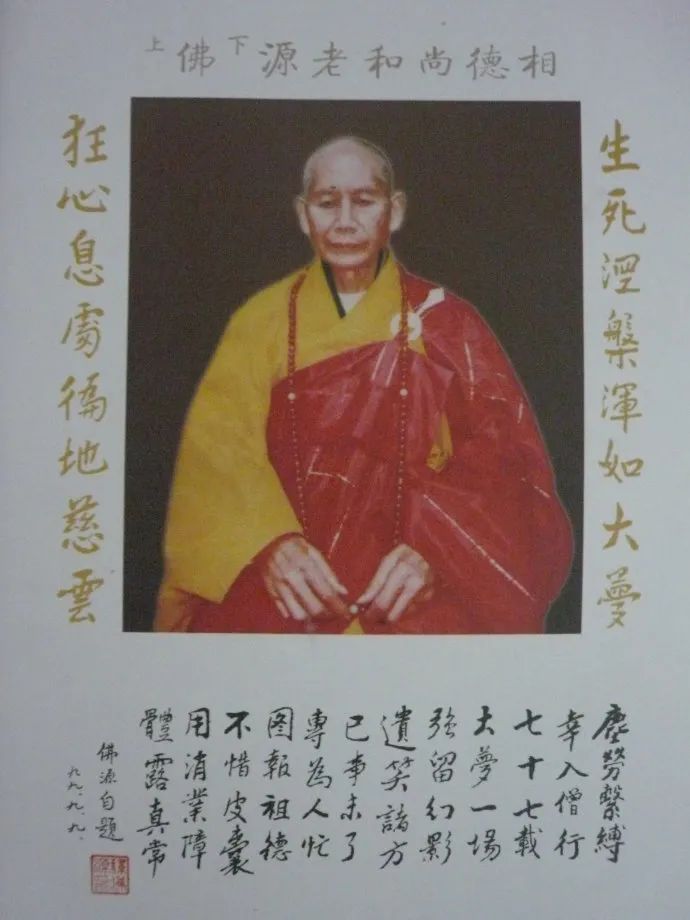 上佛下源老和尚德相
生死涅槃渾如大夢
狂心息處徧地慈雲
塵勞繫縛
幸入僧行
七十七載
大夢一場
強留幻影
遺笑諸方
已事未了
專為人忙
图報祖德
不惜皮囊
用消業障
體露真常
佛源自題
九九.九.九.